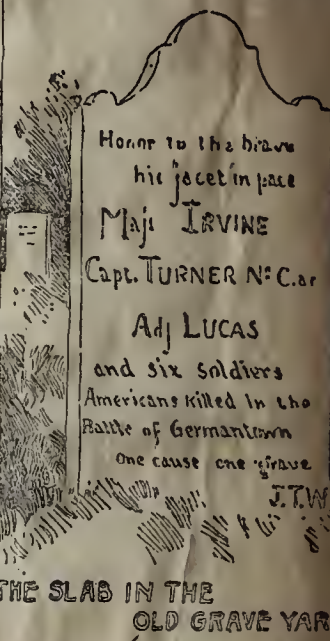 Honor to the brave
hic jacet in pace
Maj: IRVINE
Capt. TURNER No: C.ar
Adj LUCAS
and six soldiers
Americans killed in the
Battle of Germantown
one cause one grave
J.T.W
THE SLAB IN THE
OLD GRAVE YAR